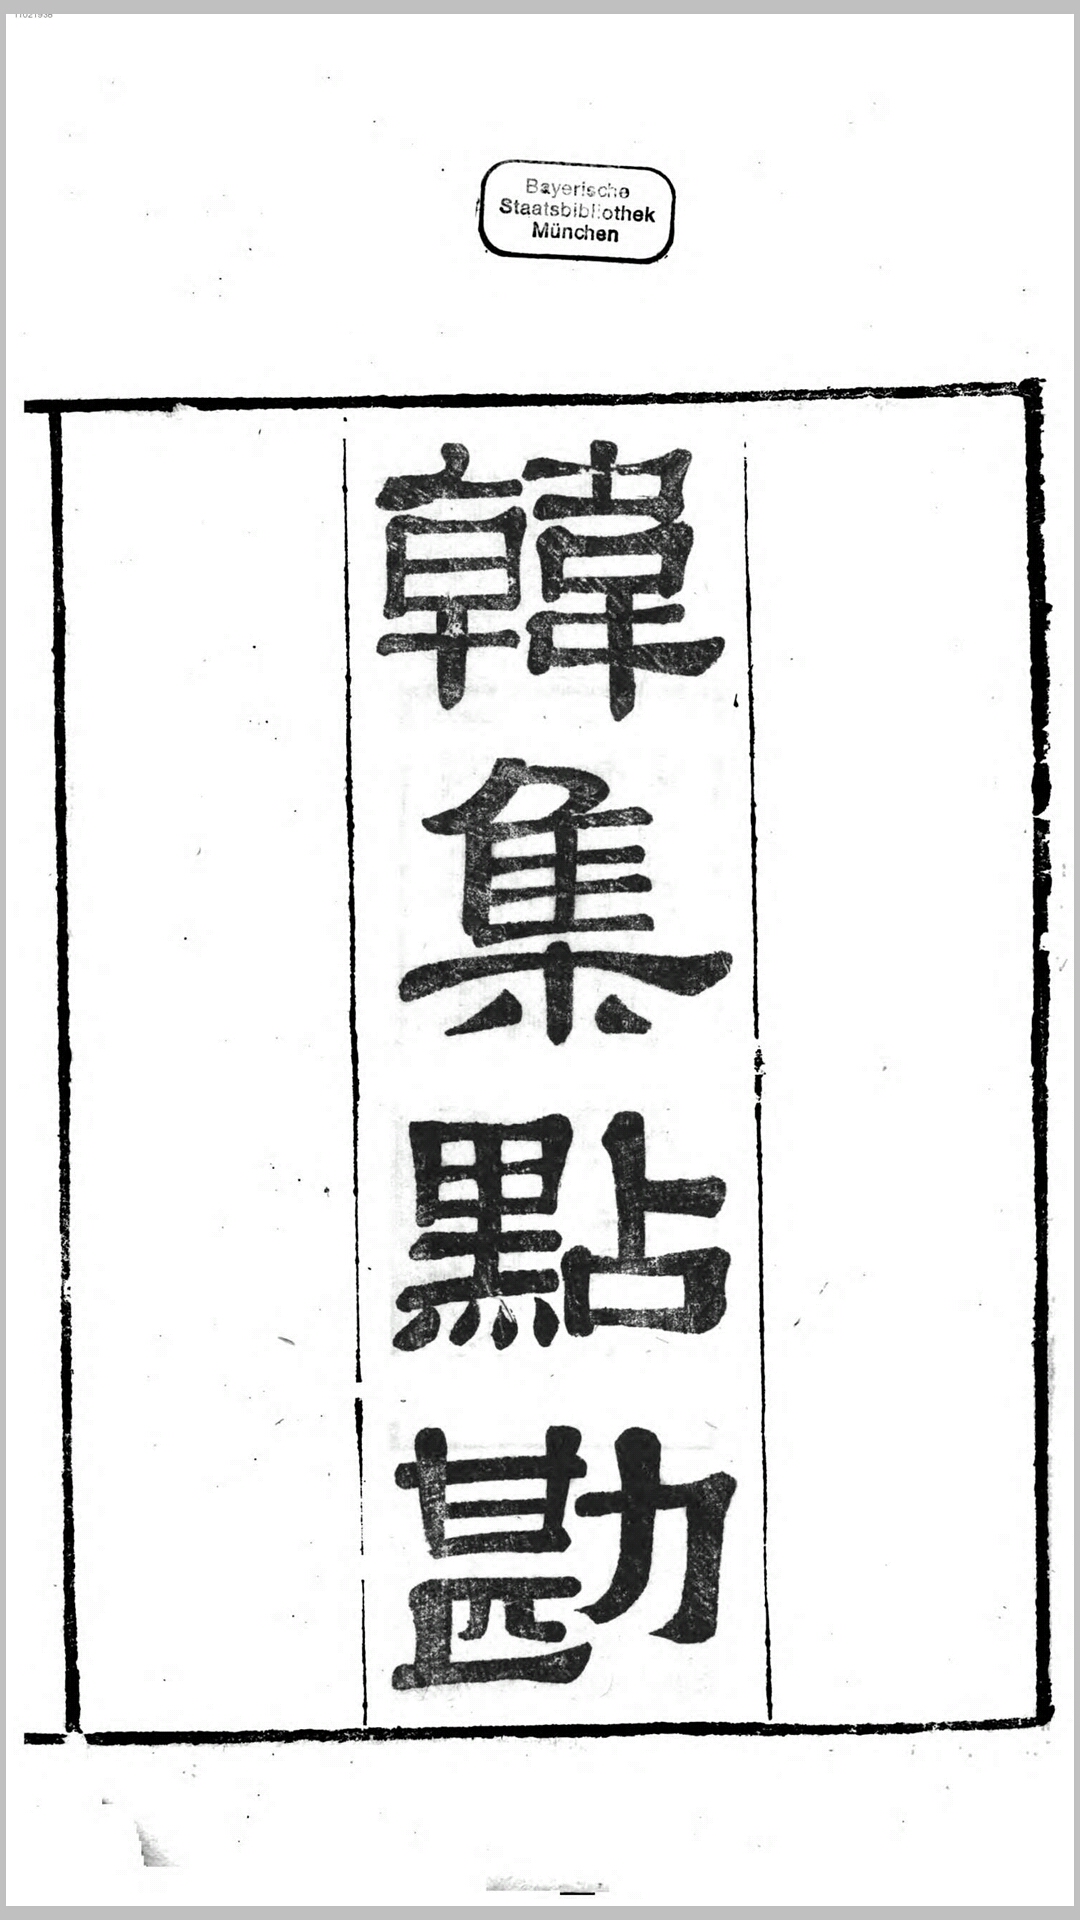 11021938
Bayerische
Staatsbibliothek
München
韓集點勘